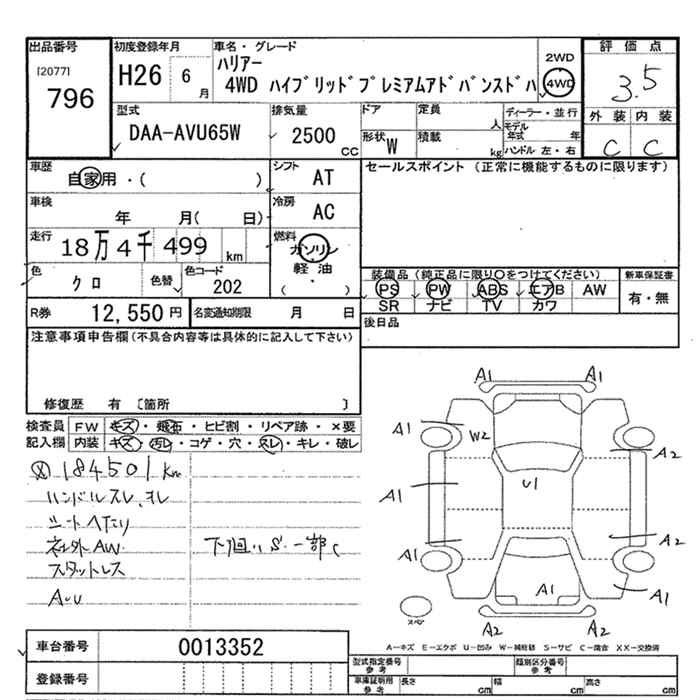 出品番号 初度登録年月 車名・グレード 評価点
[2077] 796
H26 6月
ハリアー
4WD ハイブリッドプレミアムアドバンスドパ
2WD
4WD
3.5
外装 内装
C C
型式 排気量 ドア 定員 ディーラー・並行
DAA-AVU65W 2500 CC
人 モデル年式 年
形状 W 積載 kg ハンドル 左・右
車歴 シフト セールスポイント (正常に機能するものに限ります)
自家用・( ) AT
車検 冷房
年 月( 日) AC
走行 燃料
18万4千499 km ガソリン
軽油
・
( )
色 色替 色コード
クロ 202
装備品 (純正品に限り○をつけてください) 新車保証書
PS PW ABS エアB AW 有・無
SR ナビ TV カワ
R券 12,550円 名変通知期限 月 日
後日品
注意事項申告欄(不具合内容等は具体的に記入して下さい)
修復歴 有 [箇所 ]
検査員 FW キズ・飛石・ヒビ割・リペア跡・×要
記入欄 内装 キズ・汚レ・コゲ・穴・スレ・キレ・破レ
184501km
ハンドルスレ、ヨレ
シートヘタリ
社外AW 下廻りS・一部C
スタットレス
A・U
A1 A1
A1 W2 A2
A1 U1
A1 A2
A1 A1
スペア A2 A2
A=キズ E=エクボ U=凹み W=補修跡 S=サビ C=腐食 XX=交換済
車台番号 0013352
登録番号
型式指定番号 参考 類別区分番号 参考
車庫証明用 参考 長さ cm 幅 cm 高さ cm